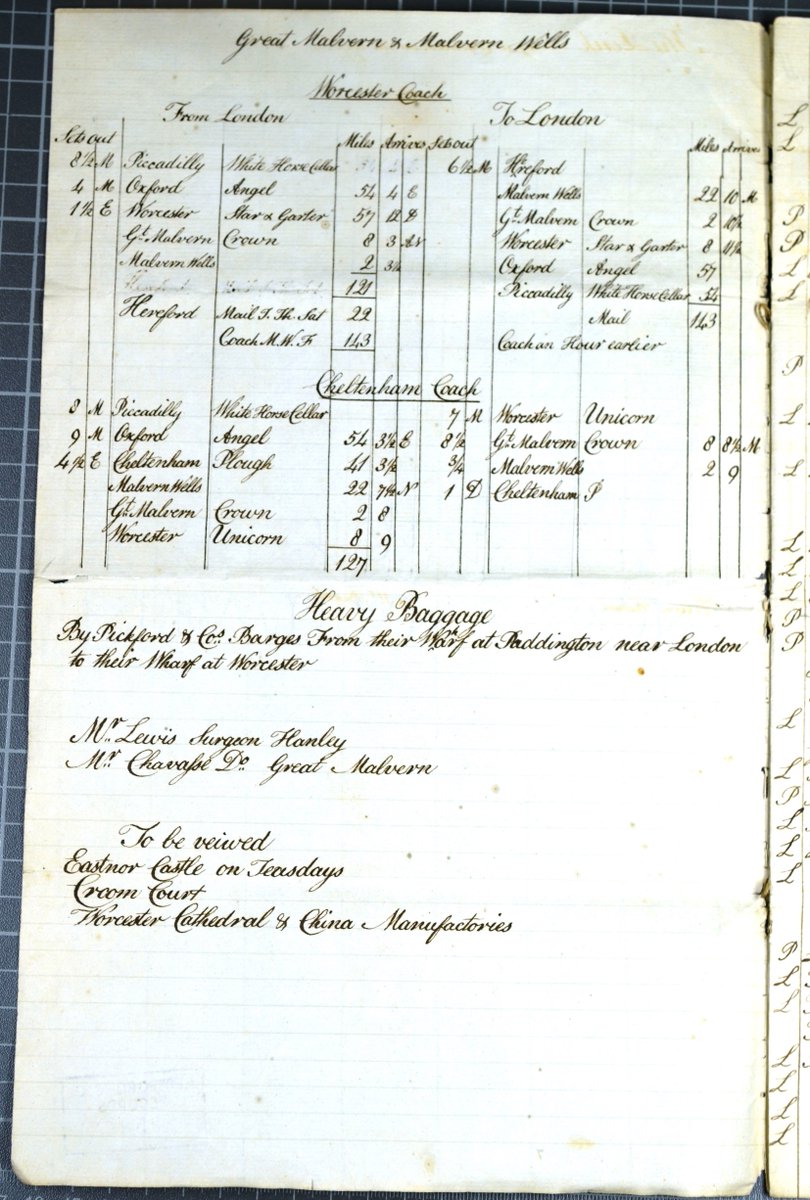 Great Malvern & Malvern Wells
Worcester Coach
From London To London
Sets out Miles Arrives Sets out Miles Arrives
8½ M Piccadilly White Horse Cellar 6½ M Hereford
4 M Oxford Angel 54 4 E Malvern Wells 22 10 M
1½ E Worcester Star & Garter 57 12 Gt. Malvern Crown 2 10½
Gt. Malvern Crown 8 3 Worcester Star & Garter 8 11½
Malvern Wells 2 3½ Oxford Angel 57
121 Piccadilly White Horse Cellar 54
Hereford Mail T. Th. Sat 22 Mail 143
Coach M. W. F 143 Coach an Hour earlier
Cheltenham Coach
8 M Piccadilly White Horse Cellar 7 M Worcester Unicorn
9 M Oxford Angel 54 3½ E 8½ Gt. Malvern Crown 8 8½ M
4½ E Cheltenham Plough 41 3½ ¾ Malvern Wells 2 9
Malvern Wells 22 7½ N 1 D Cheltenham P
Gt. Malvern Crown 2 8
Worcester Unicorn 8 9
127
Heavy Baggage
By Pickford & Cos. Barges From their Wharf at Paddington near London
to their Wharf at Worcester
Mr. Lewis Surgeon Hanley
Mr. Chavasse Do. Great Malvern
To be veiwed
Eastnor Castle on Teasdays
Croom Court
Worcester Cathedral & China Manufactories